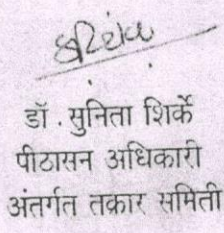 डॉ . सुनिता शिर्के
पीठासन अधिकारी
अंतर्गत तक्रार समिती